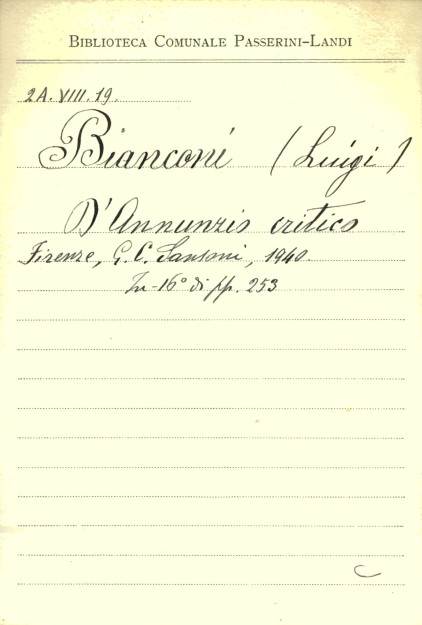 BIBLIOTECA COMUNALE PASSERINI-LANDI
2A.VIII.19.
Bianconi (Luigi)
D'Annunzio critico
Firenze, G. C. Sansoni, 1940.
In-16° di pp. 253
C